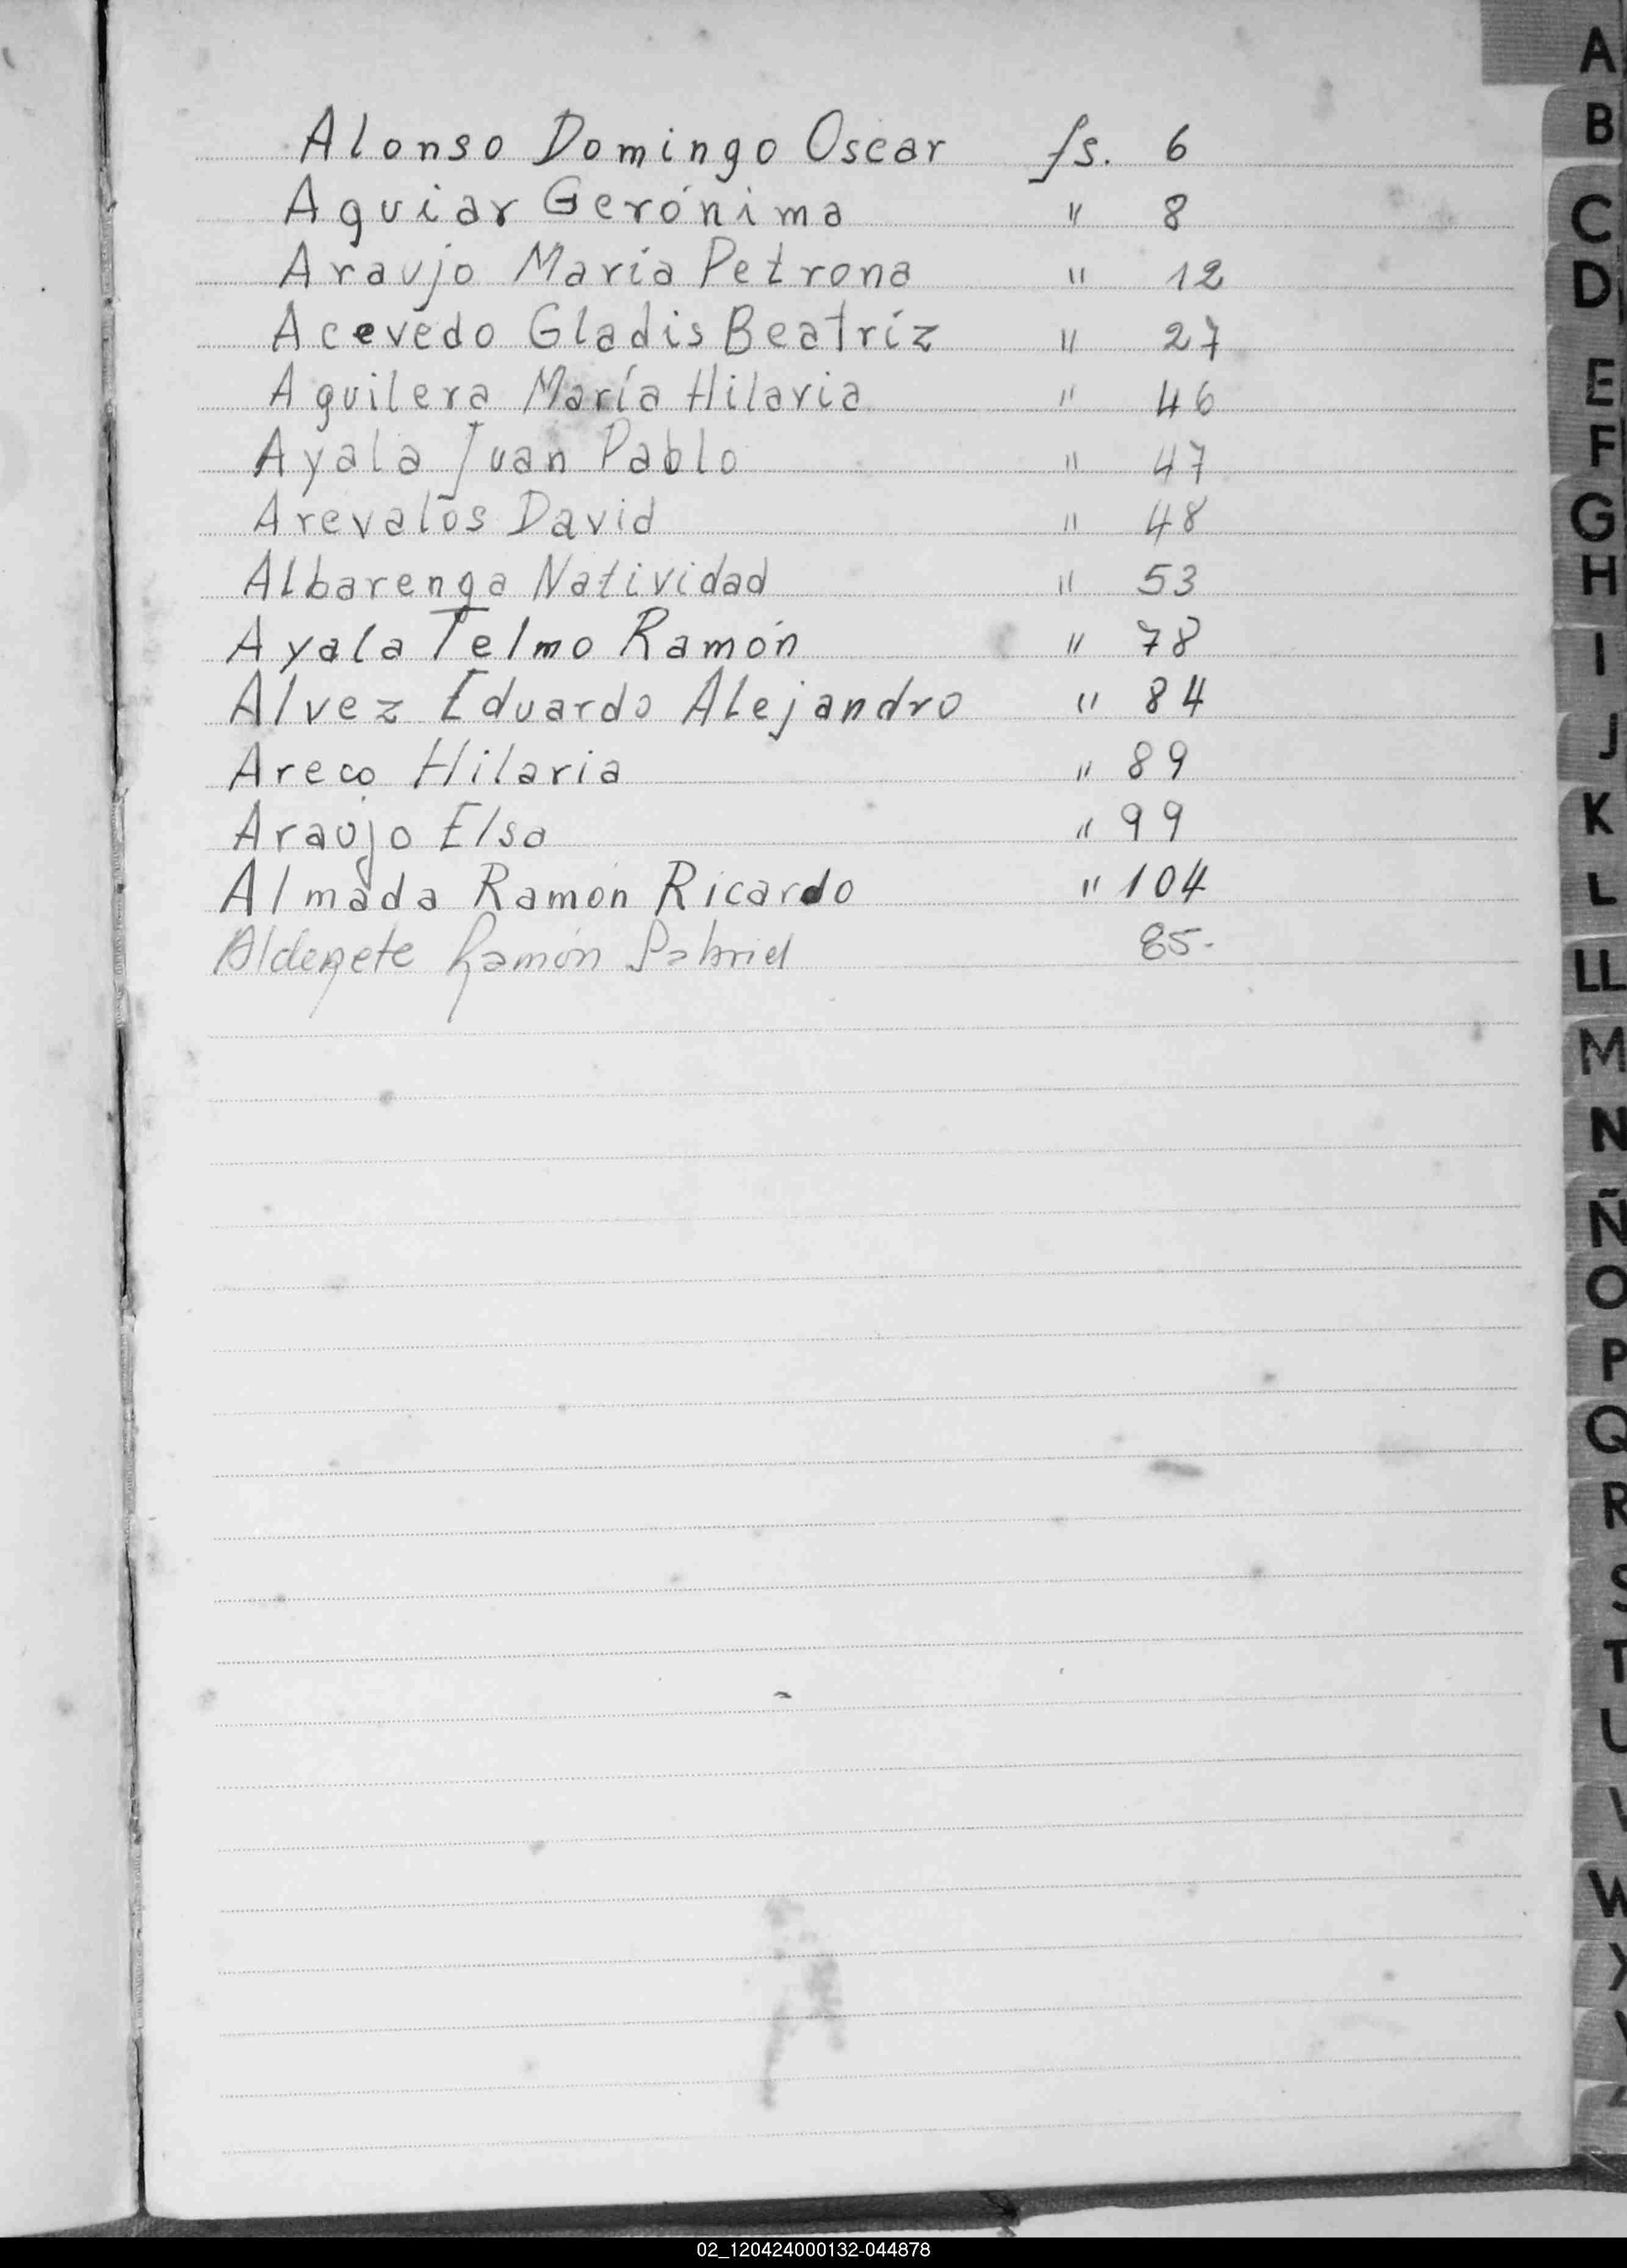 Alonso Domingo Oscar fs. 6
Aguiar Gerónima " 8
Araujo María Petrona " 12
Acevedo Gladis Beatríz " 27
Aguilera María Hilaria " 46
Ayala Juan Pablo " 47
Arevalos David " 48
Albarenga Natividad " 53
Ayala Telmo Ramón " 78
Alvez Eduardo Alejandro " 84
Areco Hilaria " 89
Araujo Elsa " 99
Almada Ramón Ricardo " 104
Alderete Ramón Gabriel 85.
A
B
C
D
E
F
G
H
I
J
K
L
LL
M
N
Ñ
O
P
Q
R
S
T
U
V
W
X
02_120424000132-044878